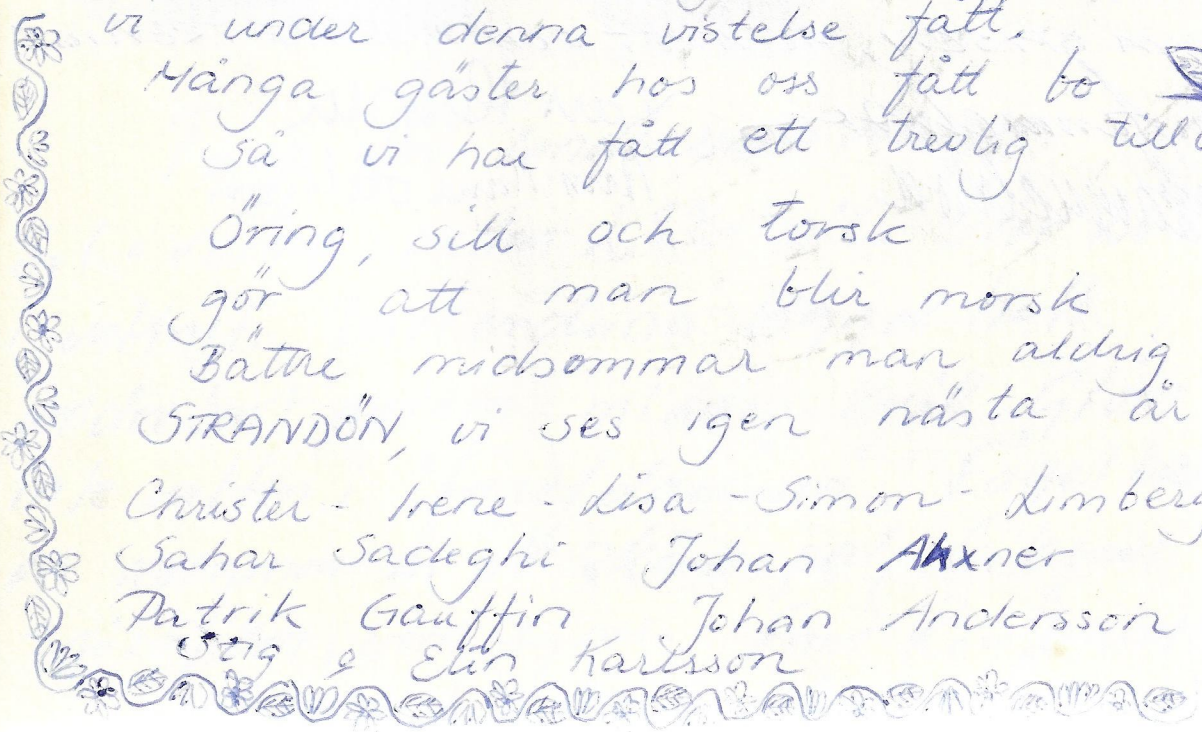 vi under denna vistelse fått.
Många gäster hos oss fått bo
Så vi har fått ett trevlig
Öring, sill och torsk
gör att man blir morsk
Bättre midsommar man aldrig
STRANDÖN, vi ses igen nästa år
Christer - Irene - Lisa - Simon - Limberg
Sahar Sadeghi Johan
Patrik Gauffin Johan Andersson
Stig & Elin Karlsson